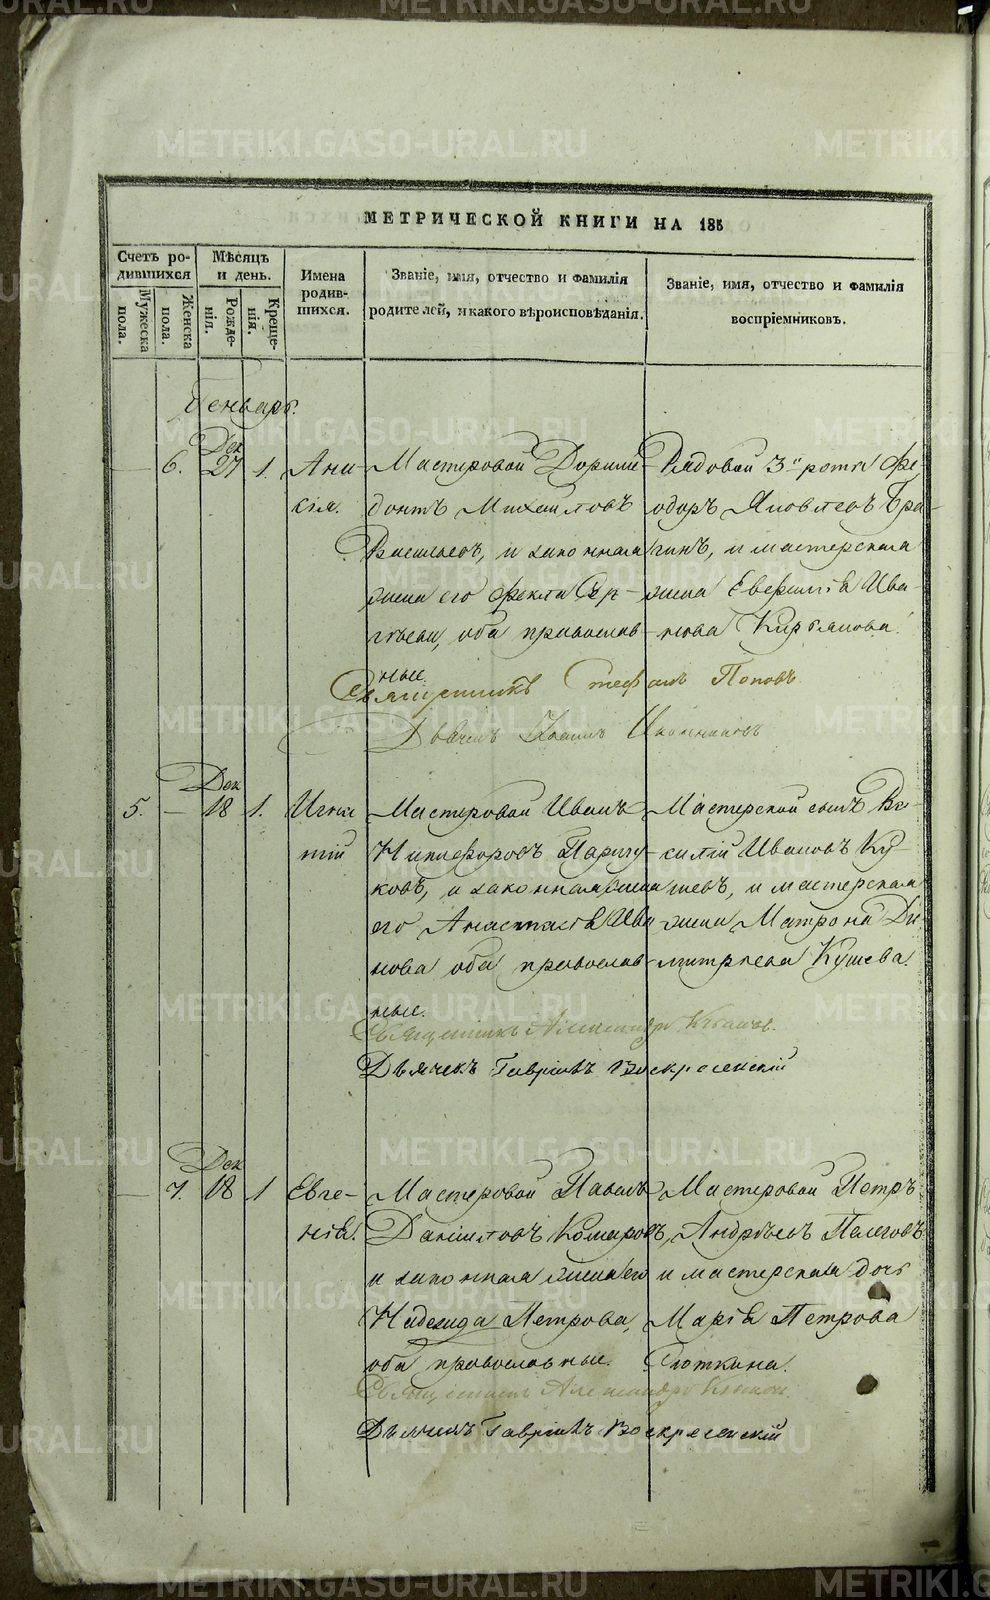 МЕТРИЧЕСКОЙ КНИГИ НА 185
Счетъ родившихся
Мужеска пола.
Женска пола.
Мѣсяцъ и день.
Рожденія.
Крещенія.
Имена родившихся.
Званіе, имя, отчество и фамилія родителей, и какого вѣроисповѣданія.
Званіе, имя, отчество и фамилія воспріемниковъ.
Генварь.
Дек
— 6. 27 1.
Ани-
сія.
Мастеровой Дориме-
донтъ Михаиловъ
Васильевъ, и законная
жена его Фекла Сер-
гѣева, оба православ-
ные.
Рядовой 3й роты Фе-
одоръ Яковлевъ
и мастерская
жена Евфимія Ива-
нова Кирьянова.
Священникъ Стефанъ Поповъ
Дьячекъ
Дек
5. — 18 1.
Игна
тій
Мастеровой Иванъ
Никифоровъ
ковъ, и законная жена
его Анастасія Ива
нова оба православ-
ные.
Мастерской сынъ Ва-
силій Ивановъ Ку-
шевъ, и мастерская
жена Матрона Ди-
митріева Кушева.
Священникъ Александръ
Дьячекъ Гавріилъ Воскресенскій
Дек
— 7. 18 1
Евге-
нія.
Мастеровой Павелъ
Даниловъ Комаровъ,
и законная жена его
Надежда Петрова,
оба православные.
Мастеровой Петръ
Андреевъ Пелеговъ
и мастерская дочь
Марія Петрова
Сюткина.
Священникъ Александръ
Дьячекъ Гавріилъ Воскресенскій
METRIKI.GASO-URAL.RU